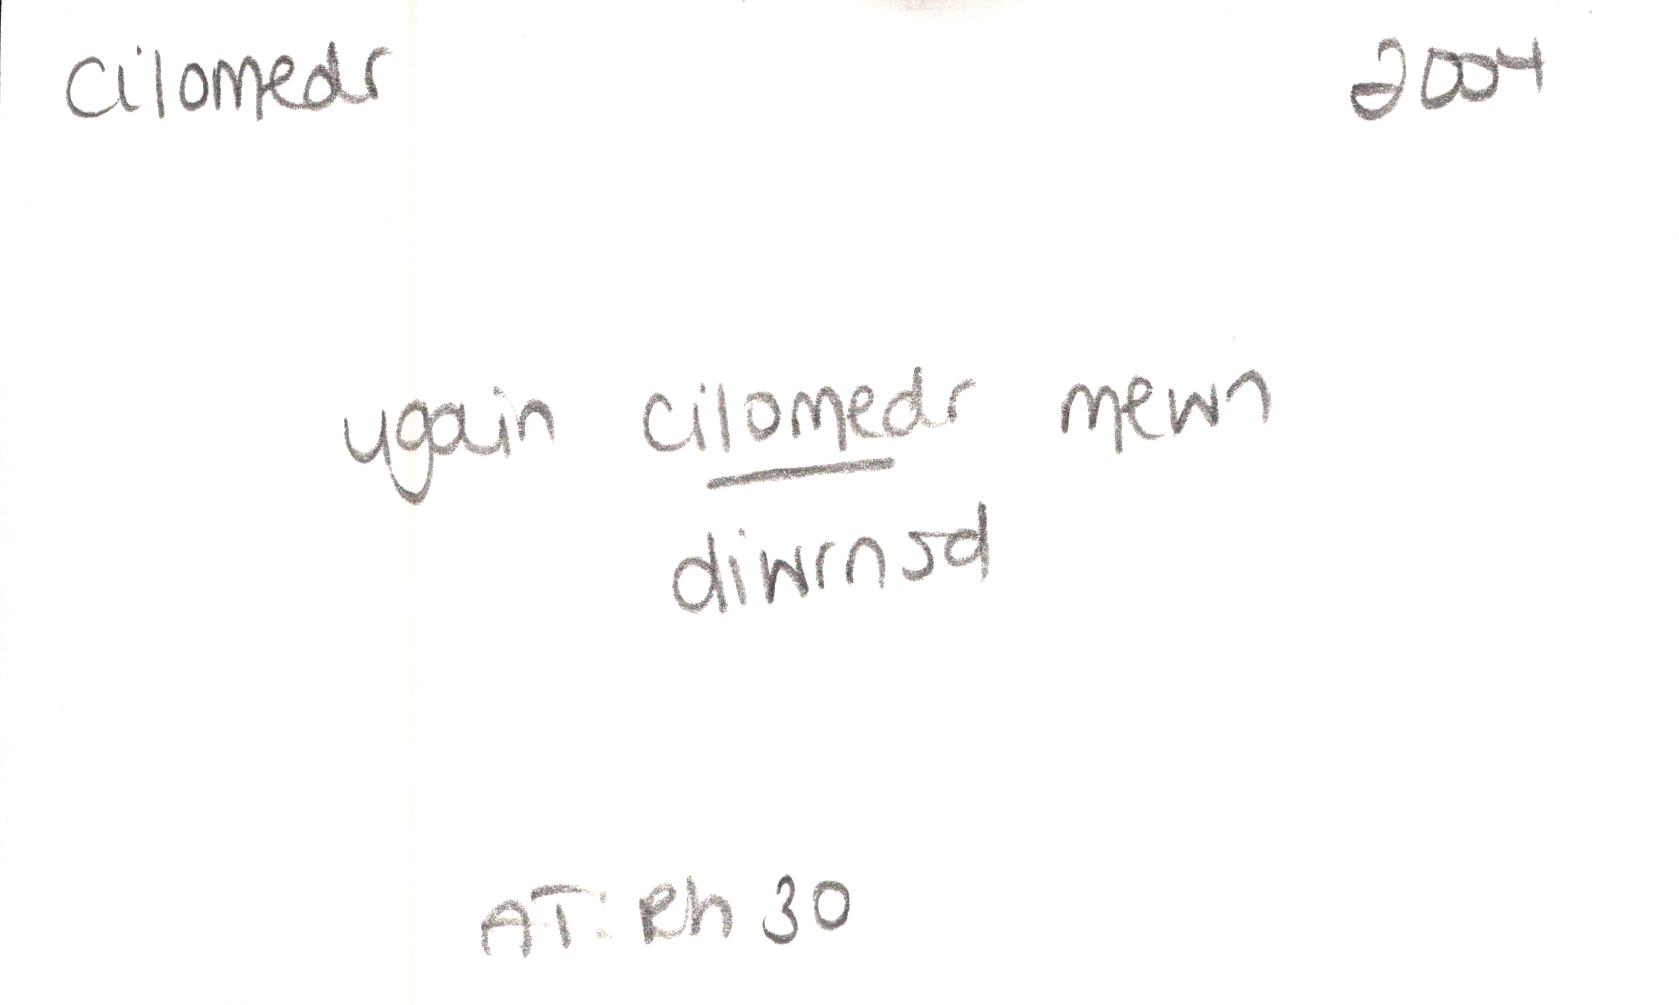 cilomedr 2004
ugain cilomedr mewn
diwrnod
AT: Rh 30